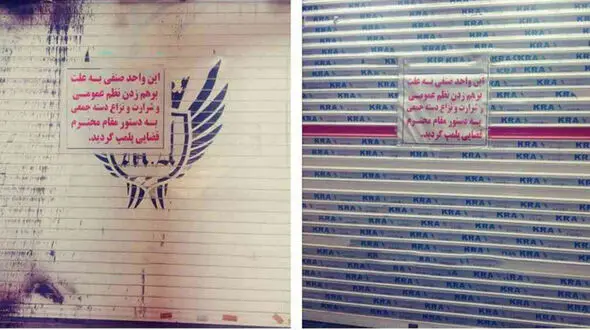 این واحد صنفی به علت
برهم زدن نظم عمومی
و شرارت و نزاع دسته جمعی
به دستور مقام محترم
قضایی پلمپ گردید.
این واحد صنفی به علت
برهم زدن نظم عمومی
و شرارت و نزاع دسته جمعی
به دستور مقام محترم
قضایی پلمپ گردید.
KRA